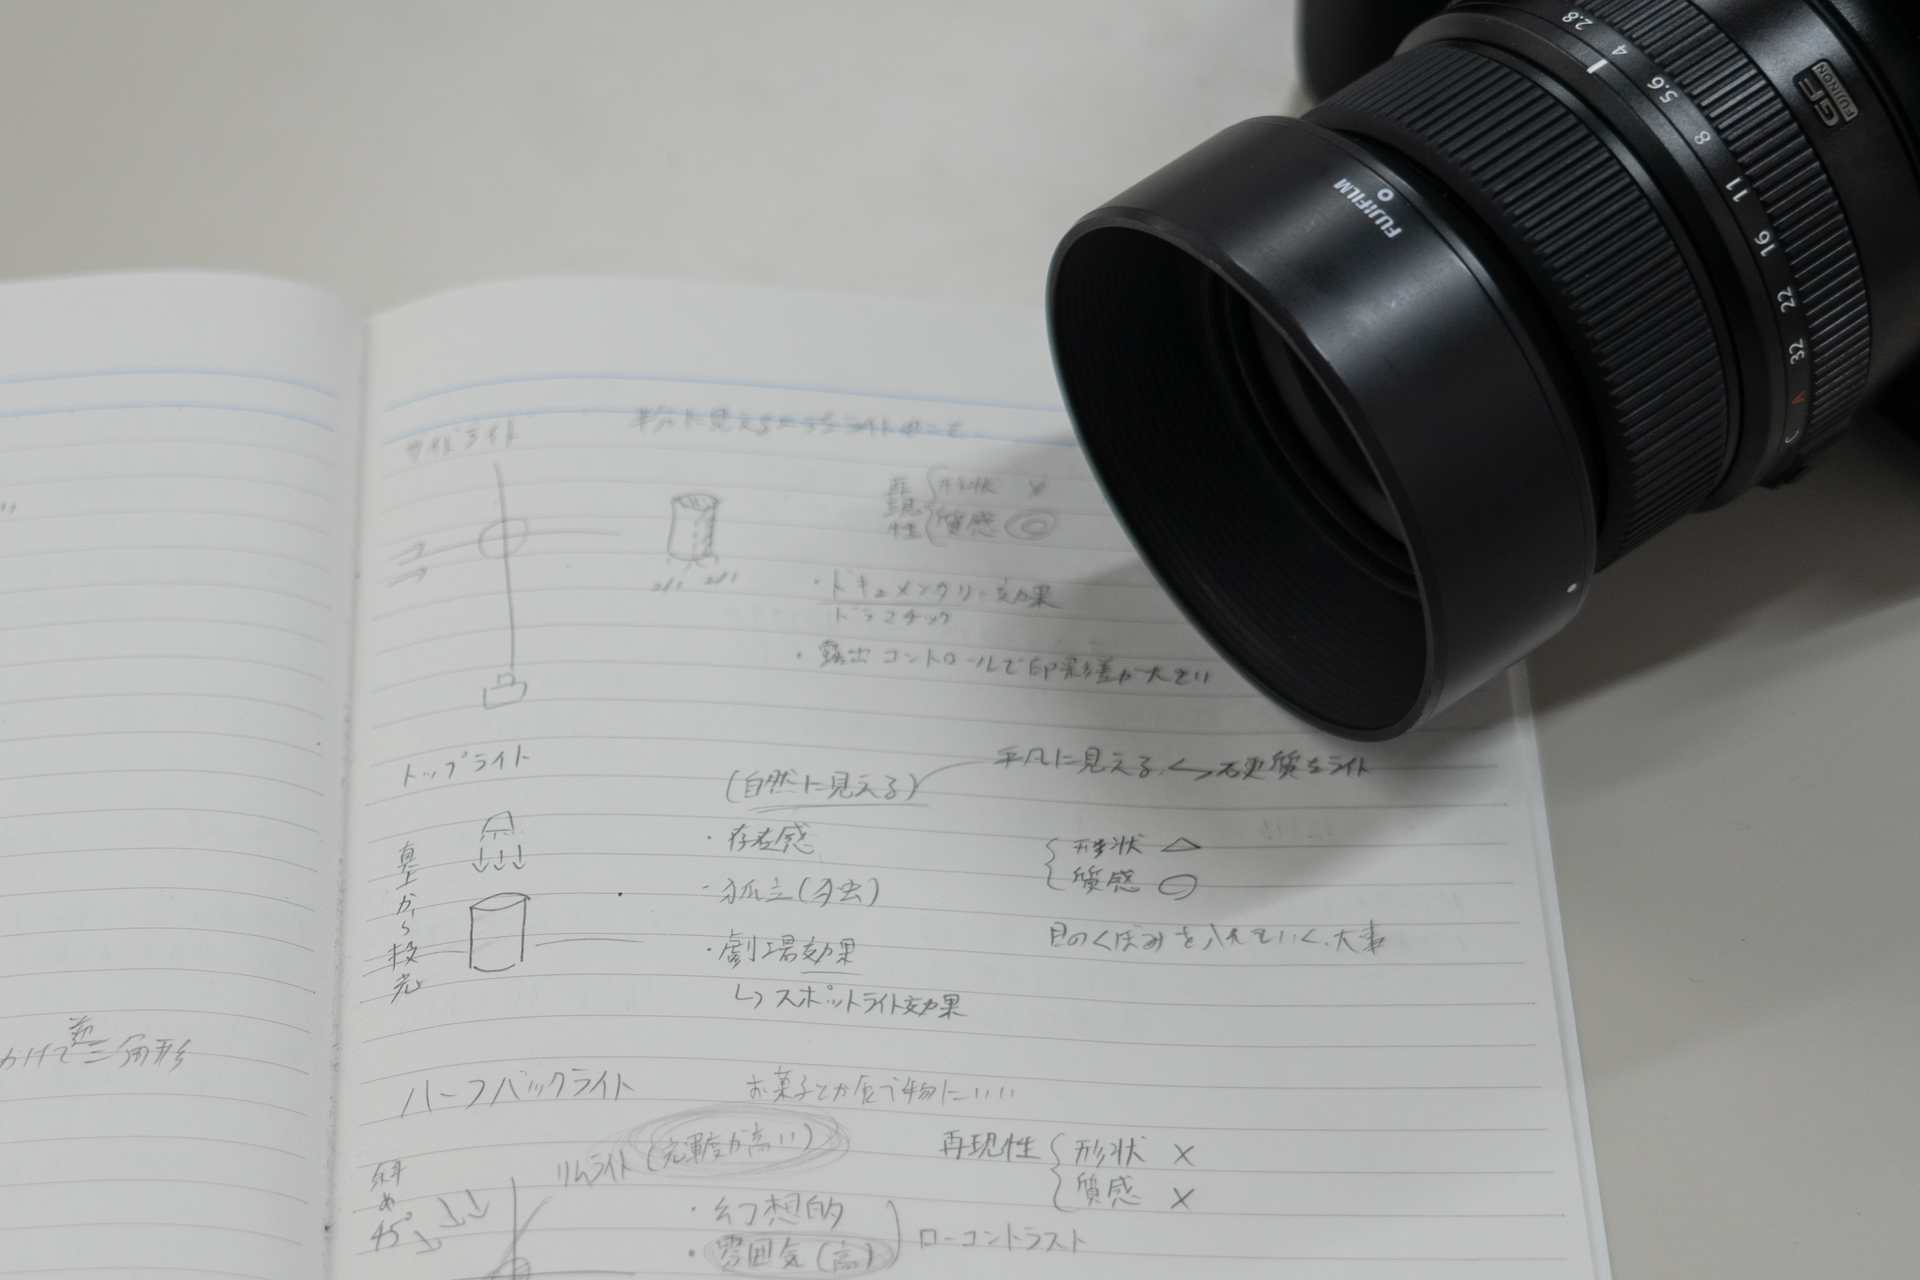 FUJIFILM
GF
FUJINON
2.8 4 5.6 8 11 16 22 32 A C
サイドライト
半分に見える
ライトのこと。
再現性
形状 ×
質感 ◎
・ドキュメンタリー効果
ドラマチック
・露出コントロールで印象差が大きい
トップライト
真上から投光
(自然に見える)
平凡に見える
硬質なライト
・存在感
・孤立(孤独)
・劇場効果
↳スポットライト効果
形状 △
質感 ○
目のくぼみを入れていく、大事
かけて逆三角形
ハーフバックライト
お菓子とか
物にいい
リムライト(光輝度が高い)
再現性
形状 ×
質感 ×
斜め45°
・幻想的
・雰囲気(高)
ローコントラスト